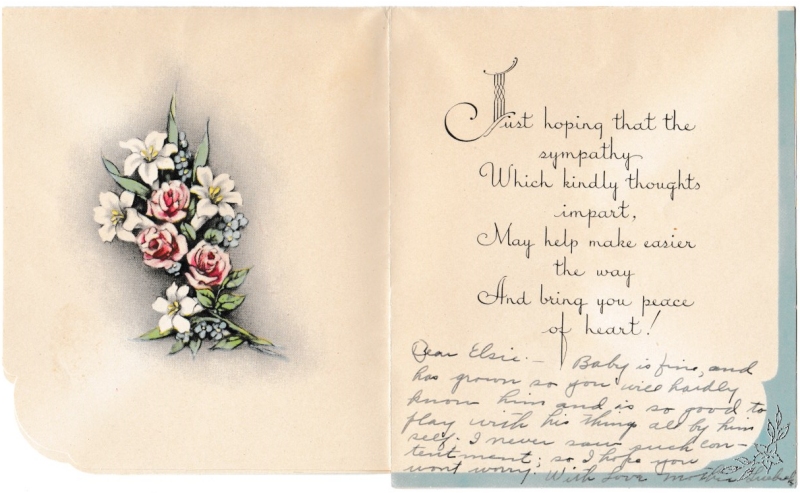 Just hoping that the
sympathy
Which kindly thoughts
impart,
May help make easier
the way
And bring you peace
of heart!
Dear Elsie. — Baby is fine, and
has grown so you will hardly
know him and is so good to
play with his things all by him
self. I never saw such con-
tentment; so I hope you
wont worry. With Love Mother